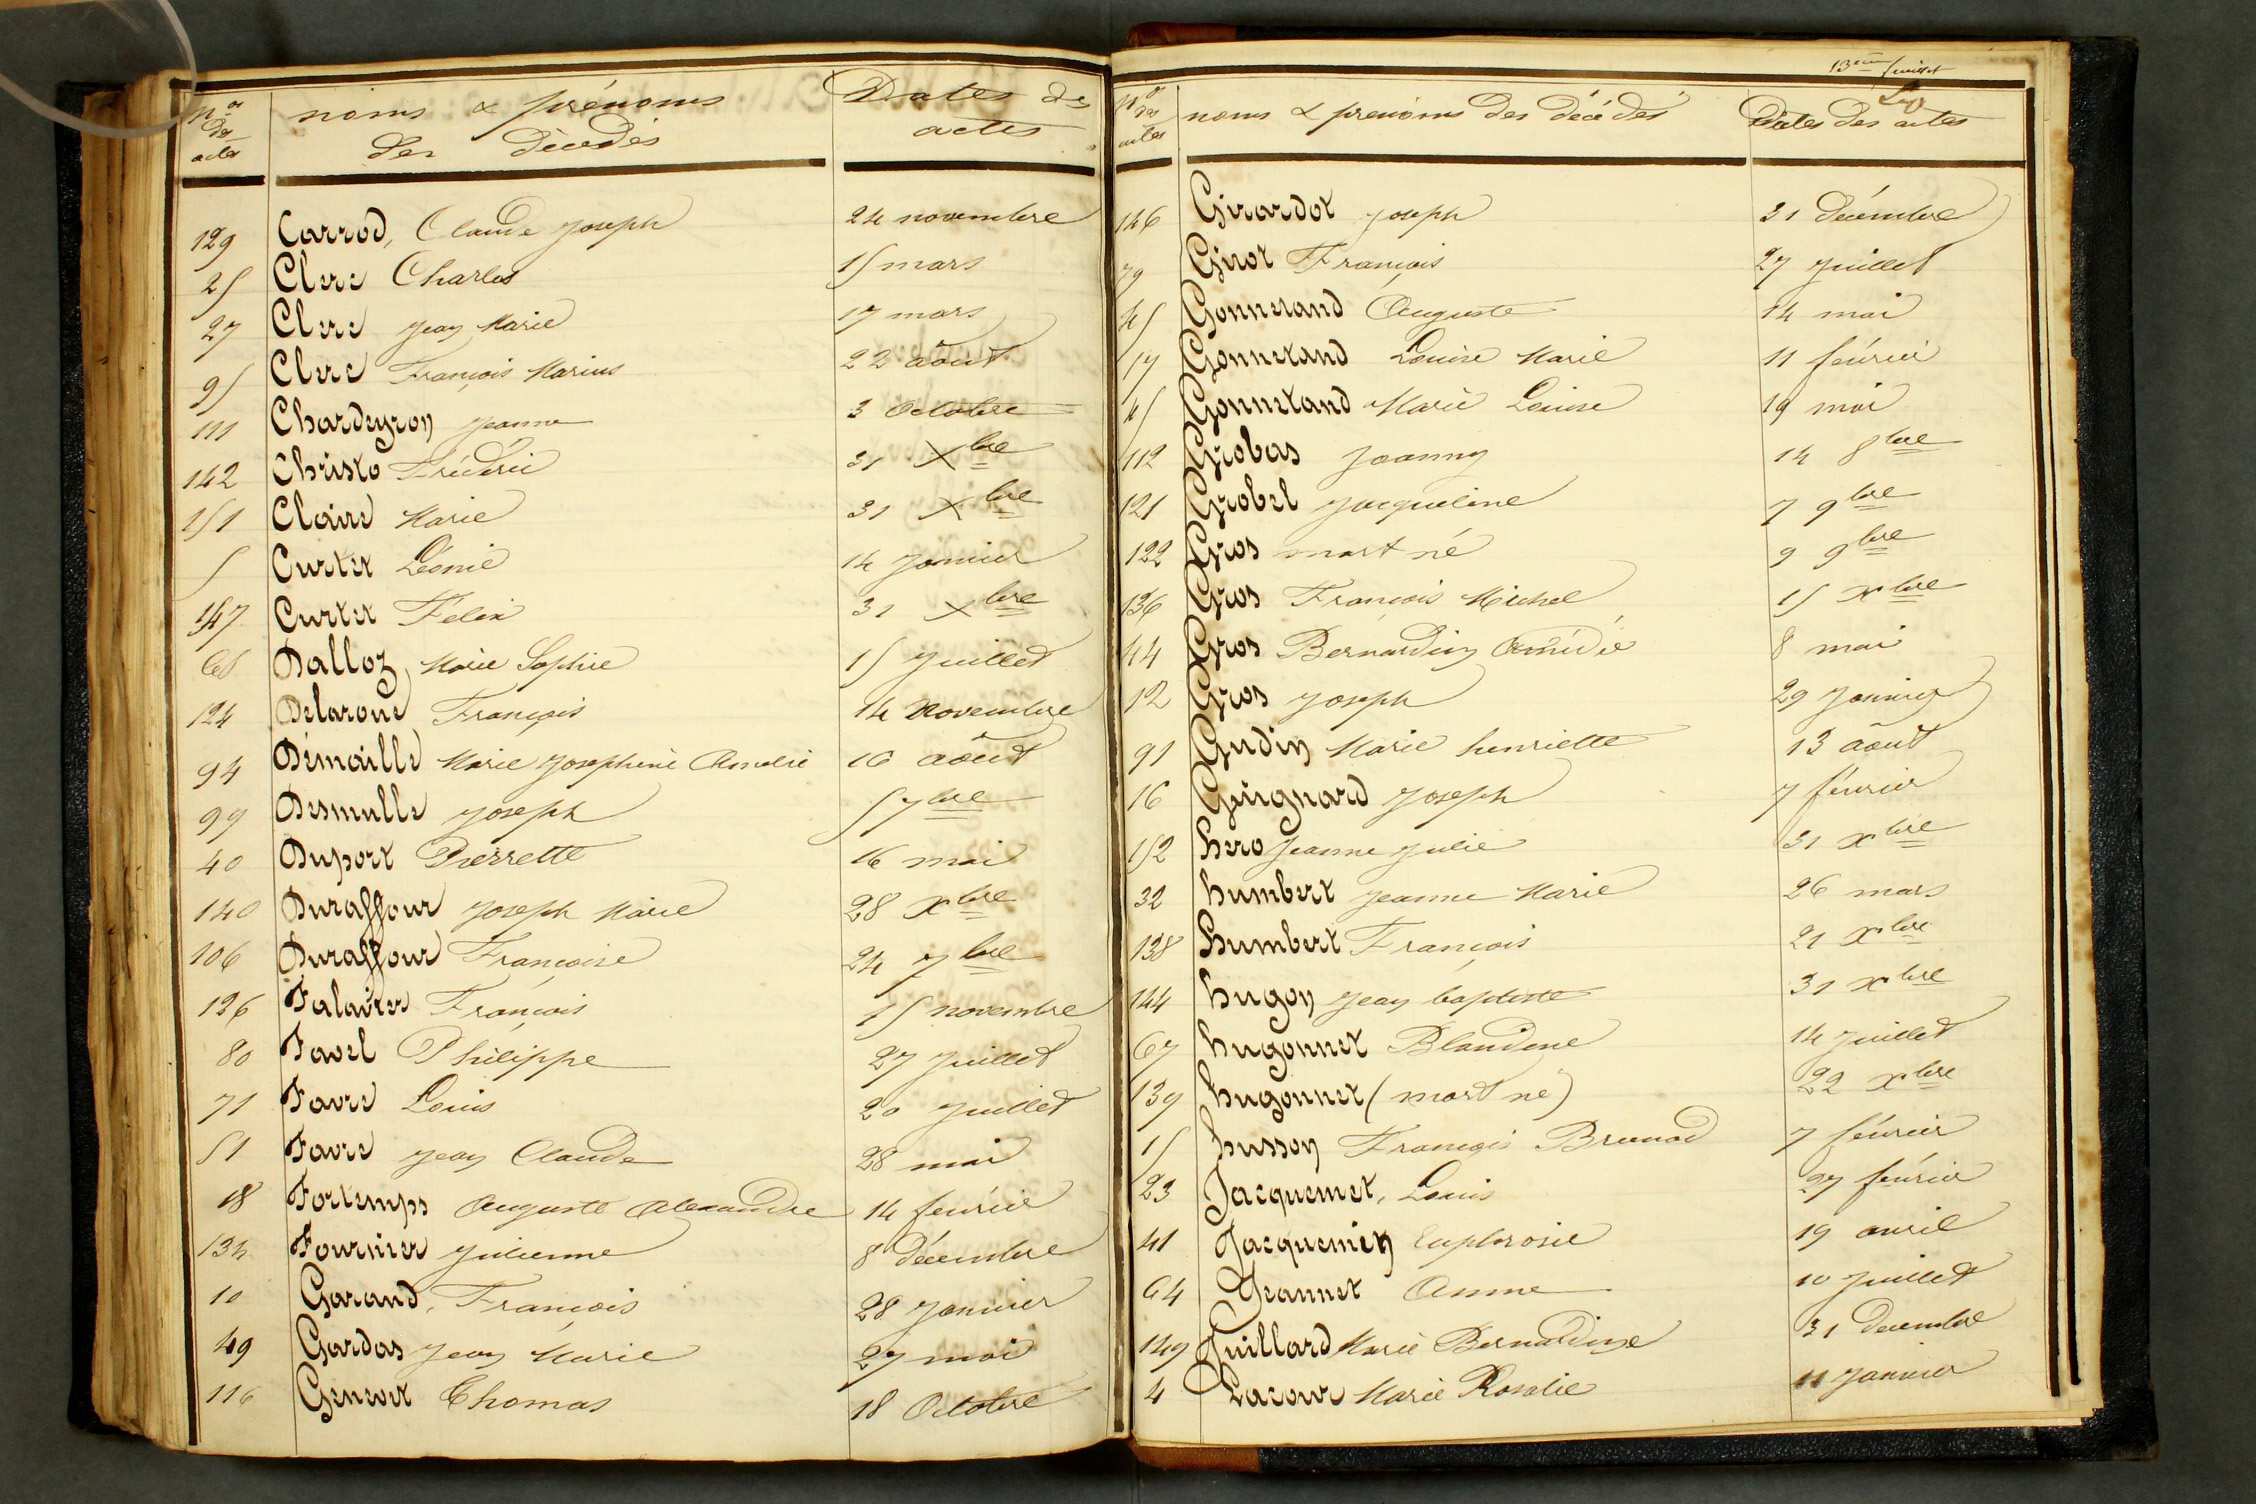 Nos des actes noms & prénoms des décédés Dates des actes
129 Carrod, Claude Joseph 24 novembre
25 Clerc Charles 15 mars
27 Clerc Jean Marie 17 mars
95 Clerc François Marius 22 août
111 Chardeyron Jeanne 3 Octobre
142 Christo Fréderic 31 Xbre
151 Claire Marie 31 Xbre
5 Curtet Léonie 14 Janvier
147 Curtet Félix 31 Xbre
68 Dalloz Marie Sophie 15 Juillet
124 Delaroue François 14 Novembre
94 Démaille Marie Josephine Amelie 16 août
99 Desmulle Joseph 5 7bre
40 Duport Pierrette 16 mai
140 Duraffour Joseph Marie 28 Xbre
106 Duraffour Françoise 24 7bre
126 François 15 novembre
80 Favel Philippe 27 Juillet
71 Favre Louis 20 Juillet
51 Favre Jean Claude 28 mai
18 Fortemps Auguste Alexandre 14 février
134 Fournier Julienne 8 décembre
10 Garand, François 28 Janvier
49 Gardas Jean Marie 27 mai
116 Genevet Thomas 18 Octobre
13eme feuillet
Nos des actes noms & prénoms des décédés Dates des actes
146 Girardot Joseph 31 Décembre
79 Girot François 27 Juillet
45 Gonnetand Auguste 14 mai
17 Gonnetand Louise Marie 11 février
45 Gonnetand Marie Louise 19 mai
112 Grobas Joanny 14 8bre
121 Grobel Jacqueline 7 9bre
122 Gros mort né 9 9bre
136 Gros François Michel 15 Xbre
44 Gros Bernardin Amédée 8 mai
12 Gros Joseph 29 Janvier
91 Gudin Marie henriette 13 août
16 Guignard Joseph 7 février
152 hero Jeanne Julie 31 Xbre
32 humbert Jeanne Marie 26 mars
138 humbert François 21 Xbre
144 hugon Jean baptiste 31 Xbre
67 hugonnet Blandine 14 Juillet
139 hugonnet (mort né) 22 Xbre
15 husson François Brunod 7 février
23 Jacquemet, Louis 27 février
41 Jacquemin Euphrosie 19 avril
64 Jeannet Anne 10 Juillet
149 Juillard Marie Bernardine 31 decembre
4 Lacour Marie Rosalie 11 Janvier